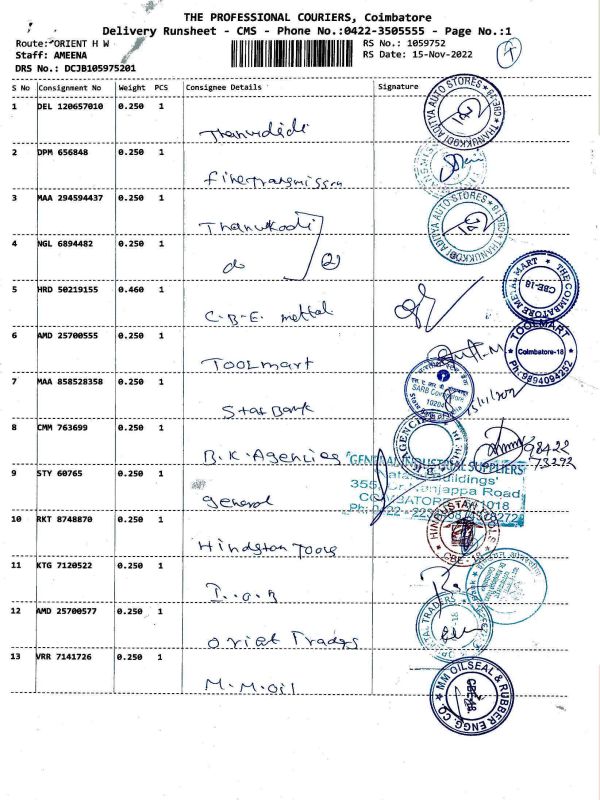 THE PROFESSIONAL COURIERS, Coimbatore
Delivery Runsheet - CMS - Phone No.:0422-3505555 - Page No.:1
Route: ORIENT H W
RS No.: 1059752
Staff: AMEENA
RS Date: 15-Nov-2022
DRS No.: DCJB105975201
S No Consignment No Weight PCS Consignee Details Signature
1 DEL 120657010 0.250 1
2 DPM 656848 0.250 1
3 MAA 294594437 0.250 1
Thanukodi
4 NGL 6894482 0.250 1
do 2
5 HRD 50219155 0.460 1
C.B.E. mettal
6 AMD 25700555 0.250 1
TOOLmart
7 MAA 858528358 0.250 1
Stat Bank
8 CMM 763699 0.250 1
B.K.Agencies
9 STY 60765 0.250 1
general
10 RKT 8748870 0.250 1
Hindston Tools
11 KTG 7120522 0.250 1
I.O.B
12 AMD 25700577 0.250 1
13 VRR 7141726 0.250 1
M.M.oil
THANUKKODI ADITYA AUTO STORES * CBE-18
THANUKKODI ADITYA AUTO STORES * CBE-18
THE COIMBATORE METAL MART * CBE-18
TOOLMART
Coimbatore-18
Ph: 9894094252
GENERAL INDUSTRIAL SUPPLIERS
HINDUSTAN TOOLS
CBE - 18
MM OILSEAL & RUBBER ENGG.CO.
CBE-18.